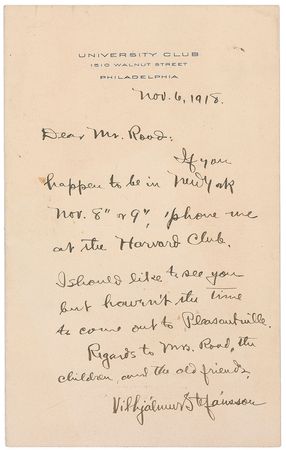 UNIVERSITY CLUB
1510 WALNUT STREET
PHILADELPHIA
Nov. 6, 1918.
Dear Mr. Rood:
If you
happen to be in New York
Nov. 8" or 9", 'phone me
at the Harvard Club.
I should like to see you
but haven't the time
to come out to Pleasantville.
Regards to Mrs. Rood, the
children, and the old friends,
Vilhjálmur Stefánsson